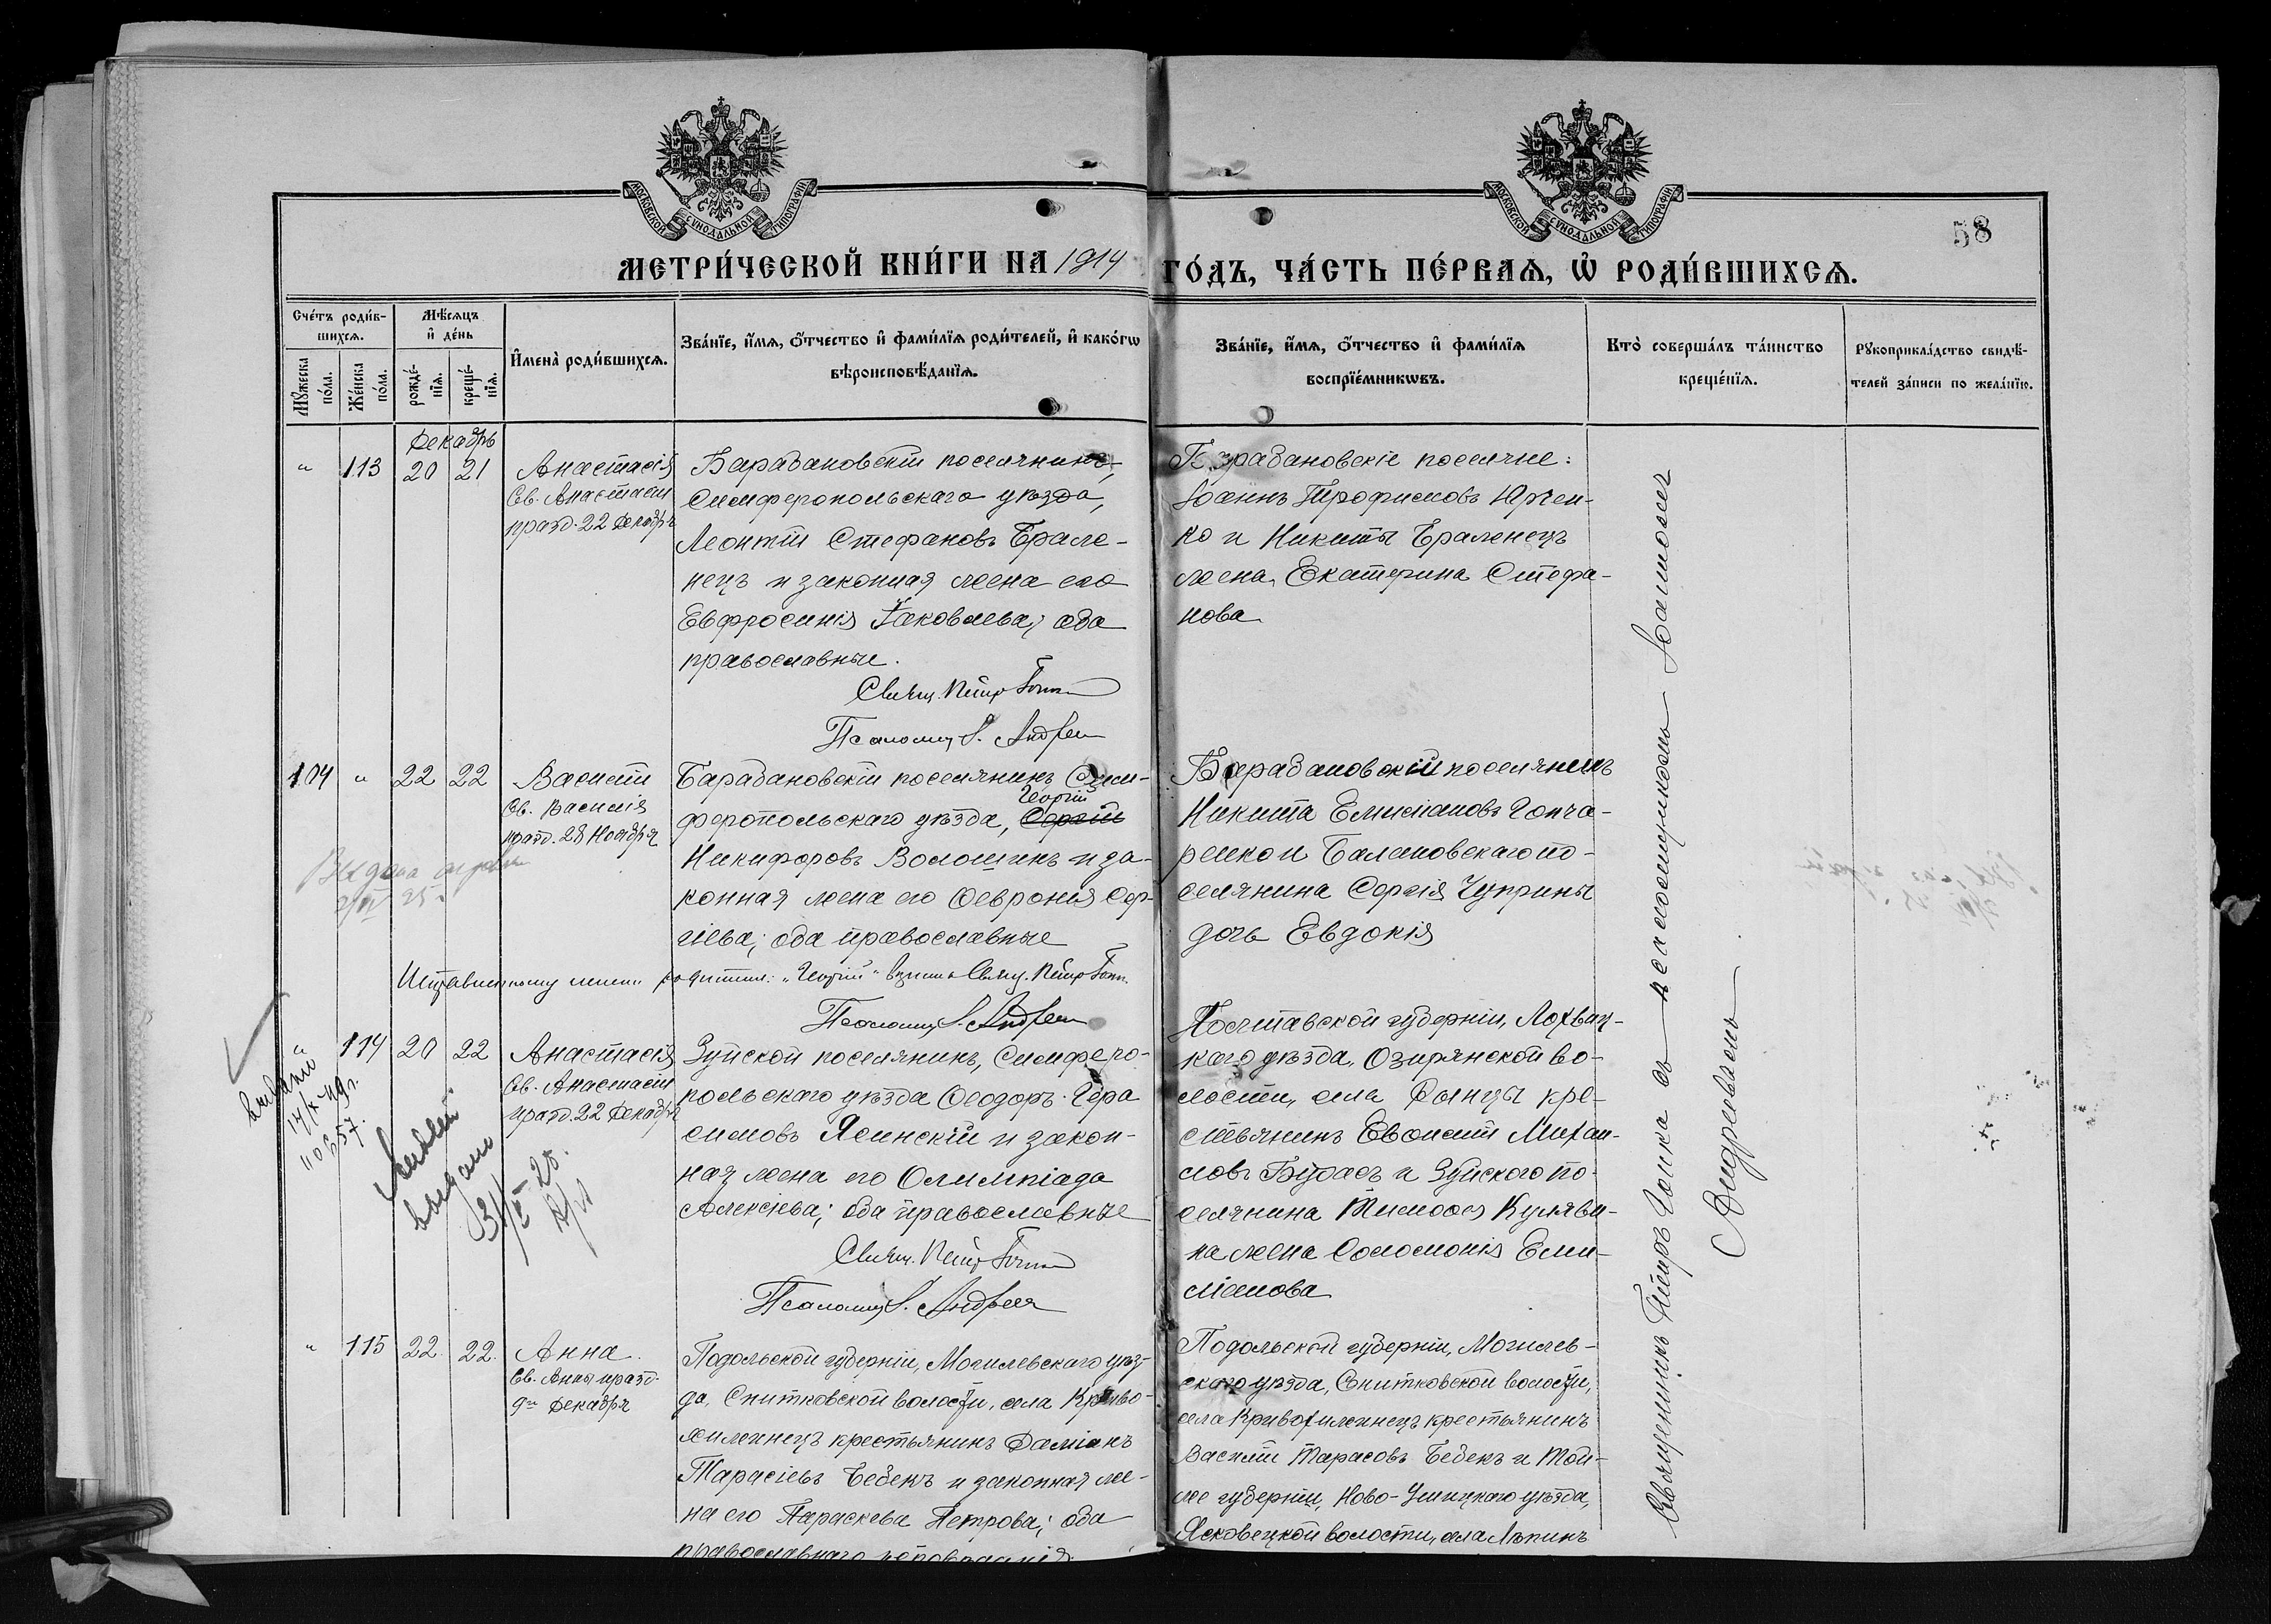 МОСКОВСКОЙ СѴНОДАЛЬНОЙ ТИПОГРАФІИ
МОСКОВСКОЙ СѴНОДАЛЬНОЙ ТИПОГРАФІИ
58
МЕТРИ́ЧЕСКОЙ КНИ́ГИ НА 1914 ГО́ДЪ, ЧА́СТЬ ПЕ́РВАѦ, Ѽ РОДИ́ВШИХСѦ.
Сче́тъ роди́в-
шихсѧ.
Мꙋ́жеска по́ла.
Же́нска по́ла.
Мѣ́сѧцъ
и҆ де́нь
рожде́-
нїѧ.
креще́-
нїѧ.
И҆мена̀ роди́вшихсѧ.
Зва́нїе, и҆́мѧ, ѻ҆́тчество и҆ фами́лїѧ роди́телей, и҆ како́гѡ
вѣроисповѣ́данїѧ.
Зва́нїе, и҆́мѧ, ѻ҆́тчество и҆ фами́лїѧ
воспрїе́мникѡвъ.
Кто̀ соверша́лъ та́инство
креще́нїѧ.
Рꙋкоприкла́дство свидѣ́-
телей за́писи по жела́нїю.
Декабрь
" 113 20 21
Анастасія
Св. Анастасіи
празд. 22 Декабря
Барабановскій поселянинъ,
Симферопольскаго уѣзда,
Леонтій Стефановъ Браже-
нецъ и законная жена его
Евфросинія Іаковлева; оба
православные.
Священ. Петръ
Псаломщ. І. Андреев
Барабановскіе поселяне:
Іоаннъ Трофимовъ Юрчен-
ко и Никиты Браженецъ
жена, Екатерина Стефа-
нова
104 " 22 22
Василій
Св. Василія
празд. 28 Ноября
Барабановскій поселянинъ Сим-
Георгій
феропольскаго уѣзда, Сергій
Никифоровъ Волошинъ и за-
конная жена его Ѳевронія Сер-
гіева; оба православные
Исправленному имени родителя: "Георгій" вѣрить Свящ. Петръ
Псаломщ. І. Андреев
Барабановскій поселянинъ
Никита Емиліановъ Гонча-
ренко и Балановскаго по-
селянина Сергія Чуприны
дочь Евдокія
Выдана
25
" 114 20 22
Анастасія
Св. Анастасіи
празд. 22 Декабря
Зуйской поселянинъ, Симферо-
польскаго уѣзда Ѳеодоръ Гера
симовъ Ясинскій и закон-
ная жена его Олимпіада
Алексіева; оба православные
Священ. Петръ
Псаломщ. І. Андреев
Полтавской губерніи, Лохвиц-
каго уѣзда, Озирянской во-
лости, села Рынцы кре-
стьянинъ Евсигній Михаи-
ловъ и Зуйскаго по-
селянина Тимоѳея Куляви-
ка жена Соломонія Еми-
ліанова
выдан
выдано
" 115 22 22
Анна
Св. Анны празд.
9го Декабря
Подольской губерніи, Могилевскаго уѣз-
да, Снитковской волости, села Криво-
хижинецъ крестьянинъ Даміанъ
Тарасіевъ Бебекъ и законная же-
на его Параскева Петрова; оба
православнаго исповѣданія.
Подольской губерніи, Могилев-
скаго уѣзда, Снитковской волости,
села Кривохижинецъ крестьянинъ
Василій Тарасовъ Бебекъ и той-
же губерніи, Ново-Ушицкаго уѣзда,
волости, села
Священникъ Петръ съ псаломщикомъ Іоанномъ
Андреевымъ